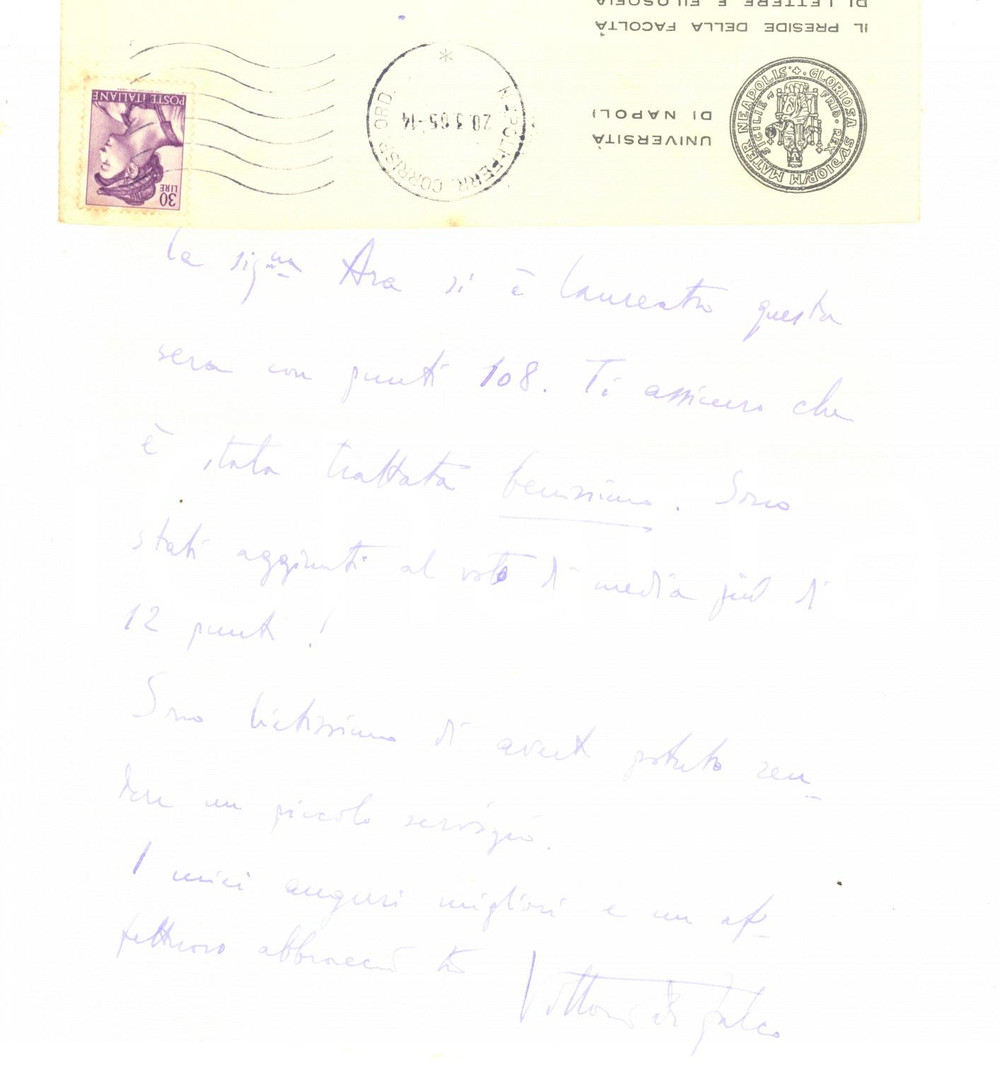 IL PRESIDE DELLA FACOLTÀ
DI LETTERE E FILOSOFIA
UNIVERSITÀ
DI NAPOLI
NEAPOLIS + GLORIOSA STVDIORVM MATER
POSTE ITALIANE
LIRE
30
NAPOLI FERR. CORRISP. ORD.
20.3.65-14
la sig.na Ara si è laureata questa
sera con punti 108. Ti assicuro che
è stata trattata benissimo. Sono
stati aggiunti al voto di media più di
12 punti!
Sono lietissimo di averti potuto ren-
dere un piccolo servigio.
I miei auguri migliori e un af-
fettuoso abbraccio tuo Vittorio de Falco